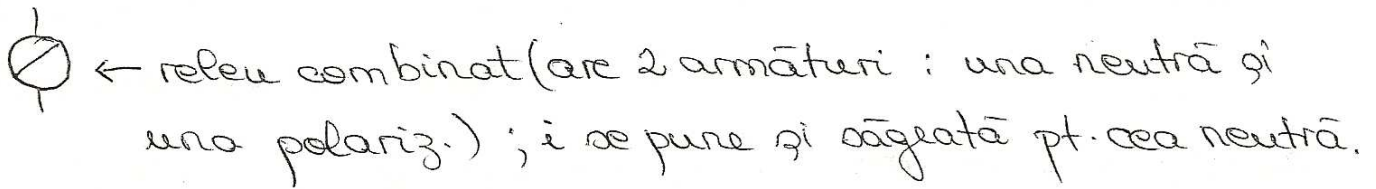 ← releu combinat (are 2 armături : una neutră și
una polariz.) ; i se pune și săgeată pt. cea neutră.